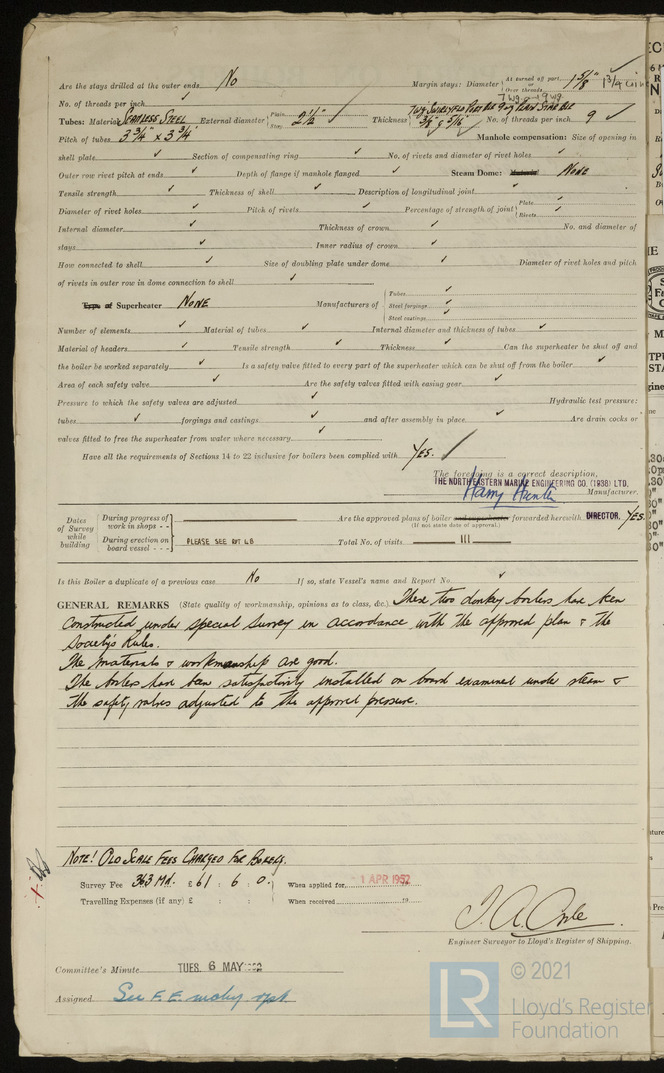 Are the stays drilled at the outer ends No Margin stays: Diameter { At turned off part, or Over threads 1 5/8" 1 3/4
No. of threads per inch ✓
Tubes: Material Seamless Steel External diameter { Plain Stay 2 1/2" ✓ Thickness 3/8" & 5/16" No. of threads per inch 9 ✓
Pitch of tubes 3 3/4" x 3 3/4" Manhole compensation: Size of opening in
shell plate ✓ Section of compensating ring ✓ No. of rivets and diameter of rivet holes ✓
Outer row rivet pitch at ends ✓ Depth of flange if manhole flanged ✓ Steam Dome: Material None
Tensile strength ✓ Thickness of shell ✓ Description of longitudinal joint ✓
Diameter of rivet holes ✓ Pitch of rivets ✓ Percentage of strength of joint { Plate ✓ Rivets ✓
Internal diameter ✓ Thickness of crown ✓ No. and diameter of
stays ✓ Inner radius of crown ✓
How connected to shell ✓ Size of doubling plate under dome ✓ Diameter of rivet holes and pitch
of rivets in outer row in dome connection to shell ✓
Type of Superheater None Manufacturers of { Tubes ✓ Steel forgings ✓ Steel castings ✓
Number of elements ✓ Material of tubes ✓ Internal diameter and thickness of tubes ✓
Material of headers ✓ Tensile strength ✓ Thickness ✓ Can the superheater be shut off and
the boiler be worked separately ✓ Is a safety valve fitted to every part of the superheater which can be shut off from the boiler ✓
Area of each safety valve ✓ Are the safety valves fitted with easing gear ✓
Pressure to which the safety valves are adjusted ✓ Hydraulic test pressure:
tubes ✓ forgings and castings ✓ and after assembly in place ✓ Are drain cocks or
valves fitted to free the superheater from water where necessary ✓
Have all the requirements of Sections 14 to 22 inclusive for boilers been complied with Yes. ✓
The foregoing is a correct description,
THE NORTH EASTERN MARINE ENGINEERING CO. (1938) LTD.
Harry Hunter Manufacturer.
DIRECTOR.
Dates of Survey while building { During progress of work in shops - - Are the approved plans of boiler and superheater forwarded herewith Yes.
(If not state date of approval.)
During erection on board vessel - - - PLEASE SEE RPT 4B Total No. of visits 111
Is this Boiler a duplicate of a previous case No If so, state Vessel's name and Report No. ✓
GENERAL REMARKS (State quality of workmanship, opinions as to class, &c.) These two donkey boilers have been
constructed under special survey in accordance with the approved plan & the
Society's Rules.
The materials & workmanship are good.
The boilers have been satisfactorily installed on board examined under steam &
the safety valves adjusted to the approved pressure.
Note! Old Scale Fees Charged For
Survey Fee 363 Md. £ 61 : 6 : 0 : When applied for 1 APR 1952
Travelling Expenses (if any) £ : : When received 19
Engineer Surveyor to Lloyd's Register of Shipping.
Committee's Minute TUES. 6 MAY 1952
Assigned See F.E. mchy. rpt.
LR © 2021
Lloyd's Register
Foundation